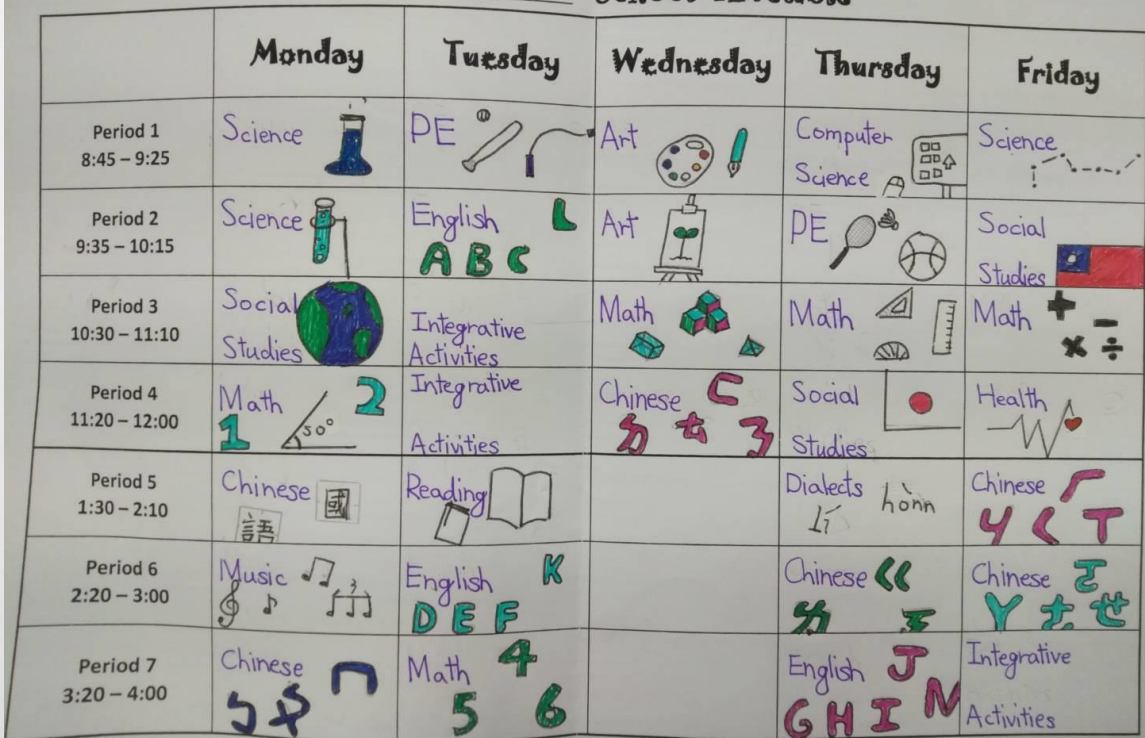 Monday Tuesday Wednesday Thursday Friday
Period 1
8:45 – 9:25
Science
PE
Art
Computer
Science
Science
Period 2
9:35 – 10:15
Science
English L
A B C
Art
PE
Social
Studies
Period 3
10:30 – 11:10
Social
Studies
Integrative
Activities
Math
Math
Math
+ −
× ÷
Period 4
11:20 – 12:00
Math 2
1 50°
Integrative
Activities
Chinese ㄈ
ㄉ ㄊ ㄋ
Social
Studies
Health
Period 5
1:30 – 2:10
Chinese 國
語
Reading
Dialects hònn
Lí
Chinese ㄏ
ㄐ ㄑ ㄒ
Period 6
2:20 – 3:00
Music
3
English K
D E F
Chinese ㄍ
ㄌ ㄎ
Chinese ㄜ
ㄚ ㄛ ㄝ
Period 7
3:20 – 4:00
Chinese ㄇ
ㄅ ㄆ
Math 4
5 6
English J
G H I N
Integrative
Activities